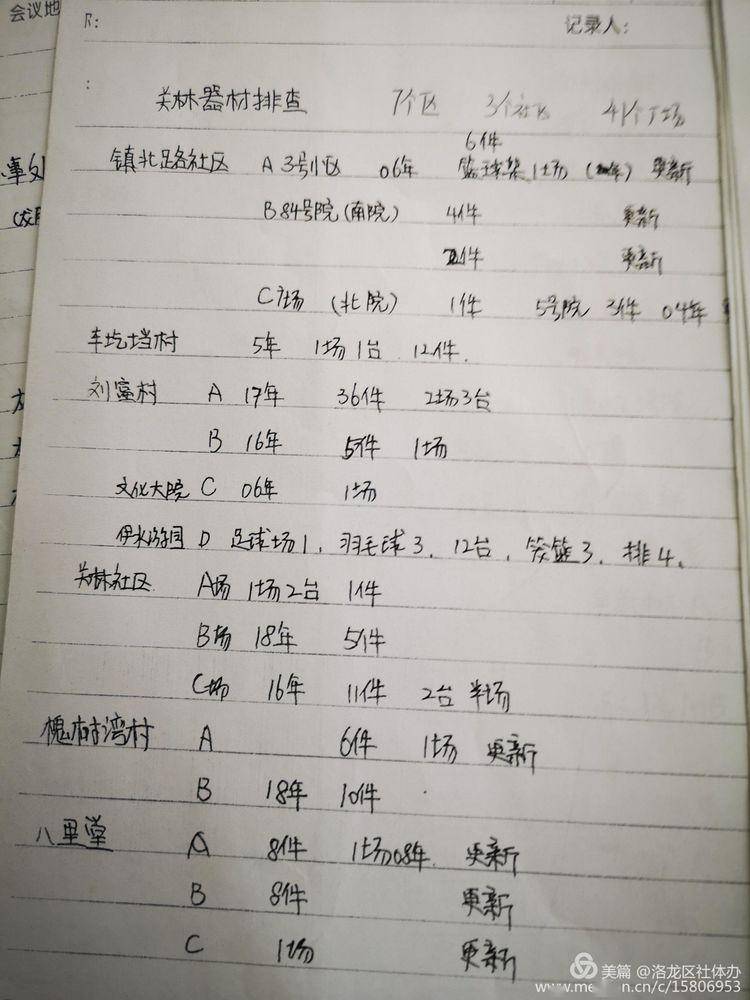 会议地
R:
记录人:
:
关林器材排查 7个区 3个社区 41个广场
6件
镇北路社区 A 3号小区 06年 篮球架 1场 更新
B 84号院(南院) 4件 更新
件 更新
C 广场 (北院) 1件 5号院 3件 04年
车圪垱村 5年 1场1台 12件.
刘富村 A 17年 36件 2场3台
B 16年 5件 1场
文化大院 C 06年 1场
伊水游园 D 足球场1, 羽毛球3, 12台, 笼篮3, 排4,
关林社区 A场 1场2台 1件
B场 18年 5件
C场 16年 11件 2台 半场
槐树湾村 A 6件 1场 更新
B 18年 10件
八里堂 A 8件 1场08年. 更新
B 8件 更新
C 1场 更新
美篇 @洛龙区社体办
n.cn/c/15806953